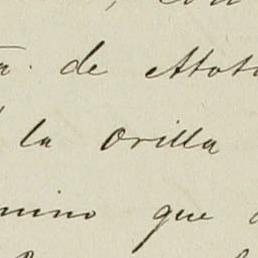 de Atoto
la Orilla
mino que